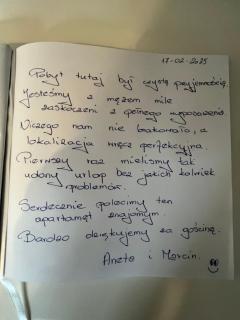 17-02-2025
Pobyt tutaj był czystą przyjemnością.
Jesteśmy z mężem mile
zaskoczeni z pełnego wyposażenia.
Niczego nam nie brakowało, a
lokalizacja wręcz perfekcyjna.
Pierwszy raz mieliśmy tak
udany urlop bez jakich kolwiek
problemów.
Serdecznie polecimy ten
apartament znajomym.
Bardzo dziękujemy za gościnę.
Aneta i Marcin.